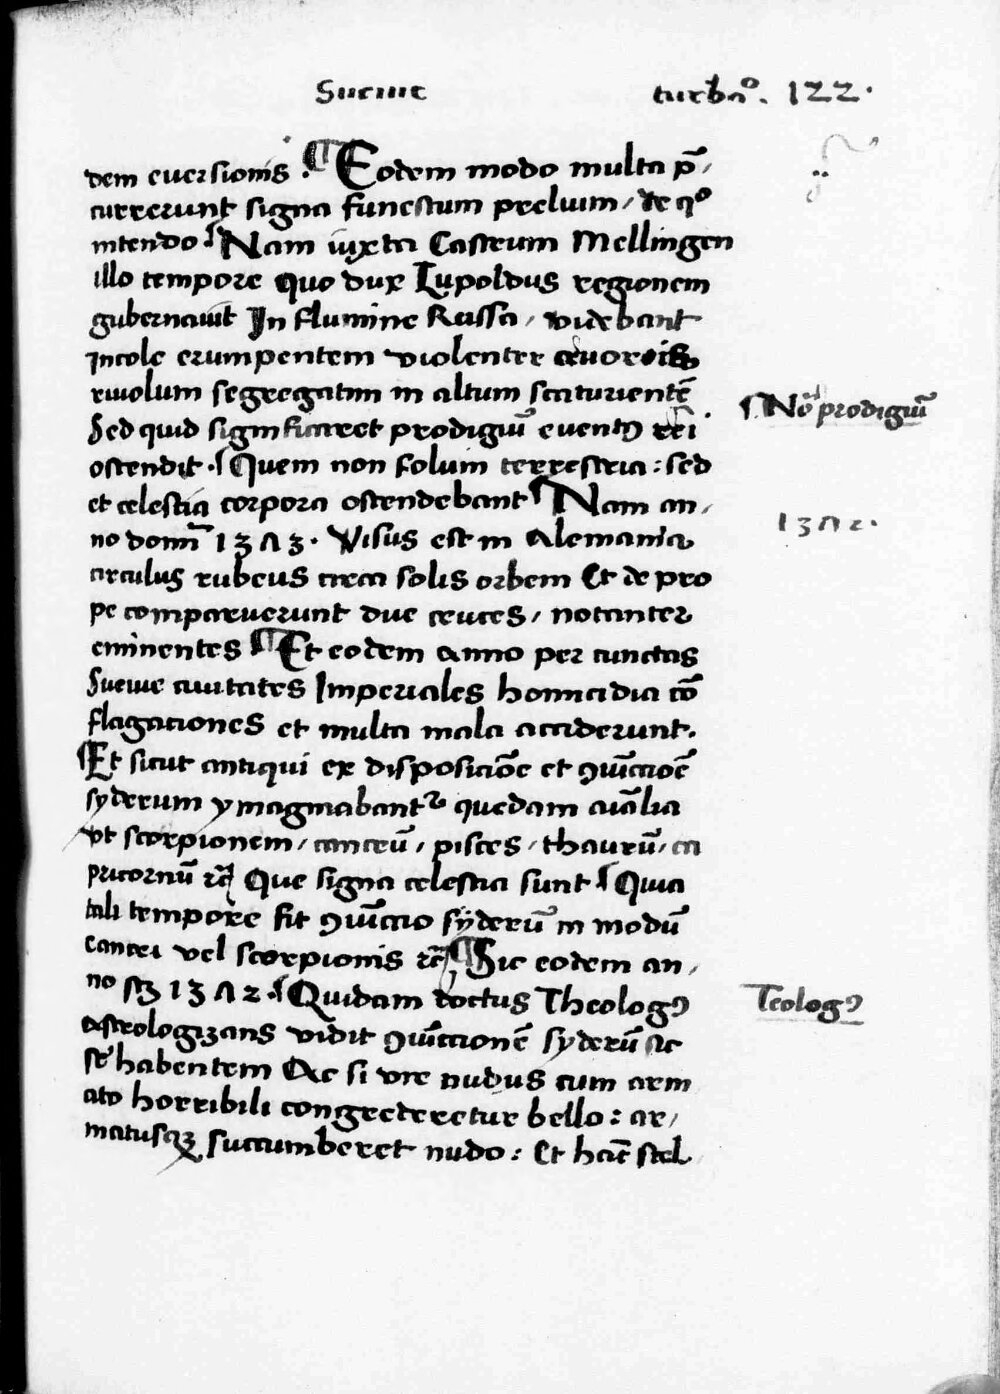 Sueuie turbaᵒ. 122.
dem euersionis. ¶ Eodem modo multa p̄-
currerunt signa funestum preluim, de qᵒ
intendo ¶ Nam iuxta Castrum Mellingen
illo tempore quo dux Lupoldus regionem
gubernauit In flumine Russa, videbant
Incole erumpentem violenter cruoris
riuolum segregatim in altum scaturientē
Sed quid significaret prodigiū euentꝰ rei
ostendit. ¶ Quem non solum terrestria: sed
et celestia corpora ostendebant ¶ Nam an-
no domī 1383. Visus est in Alemania
circulus rubeus circa solis orbem Et de pro
pe comparuerunt due cruces, notanter
eminentes ¶ Et eodem anno per cunctas
Sueuie ciuitates Imperiales homicidia cō
flagaciones et multa mala acciderunt.
¶ Et sicut antiqui ex disposiciōe et ꝯiūcciōe
syderum ymaginabantᷣ quedam aīalia
vt scorpionem, cancrū, pisces, thaurū, ca
pricornū ꝛc̄ Que signa celestia sunt ¶ Quia
tali tempore fit ꝯiūccio syderū in modū
cancri vel scorpionis ꝛc̄ ¶ Sic eodem an-
no sꝫ 1382. ¶ Quidam doctus Theologꝰ
astrologizans vidit ꝯiūccionē syderū sic
se habentem Ac si vir nudus cum arm
ato horribili congrederetur bello: ar-
matusqꝫ succumberet nudo: Et hāc stel
¶ Nō prodigiū
1382.
Teologꝰ